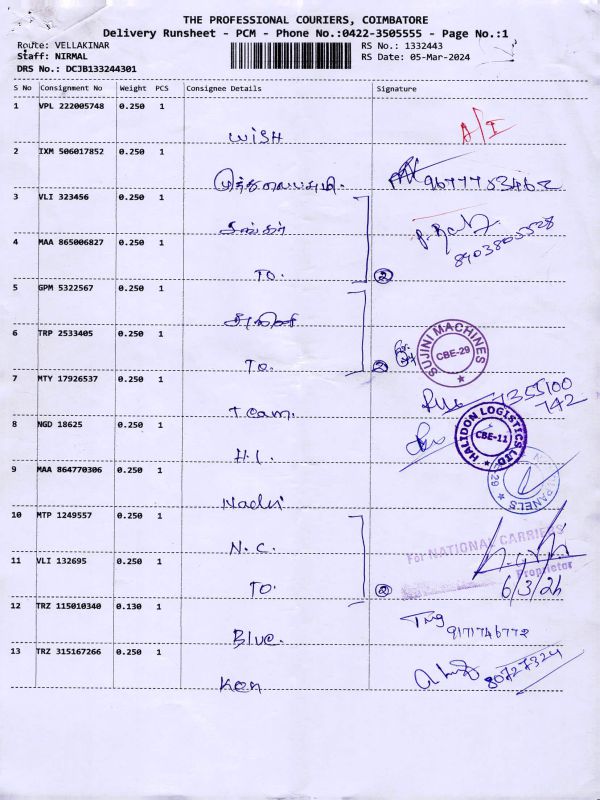 THE PROFESSIONAL COURIERS, COIMBATORE
Delivery Runsheet - PCM - Phone No.:0422-3505555 - Page No.:1
Route: VELLAKINAR
Staff: NIRMAL
DRS No.: DCJB133244301
RS No.: 1332443
RS Date: 05-Mar-2024
S No Consignment No Weight PCS Consignee Details Signature
1 VPL 222005748 0.250 1
WISH
A/I
2 IXM 506017852 0.250 1
9677753462
3 VLI 323456 0.250 1
8903805528
4 MAA 865006827 0.250 1
TO. 2
5 GPM 5322567 0.250 1
6 TRP 2533405 0.250 1
TO. 2
SUJINI MACHINES CBE-29
7 MTY 17926537 0.250 1
Team.
7355100
742
8 NGD 18625 0.250 1
H.L.
HALIDON LOGISTICS LTD CBE-11
9 MAA 864770306 0.250 1
PANELS
10 MTP 1249557 0.250 1
N.C.
For NATIONAL CARRIERS
Proprietor
11 VLI 132695 0.250 1
TO. 2
6/3/24
12 TRZ 115010340 0.130 1
Blue.
9171746772
13 TRZ 315167266 0.250 1
Ken
80727324